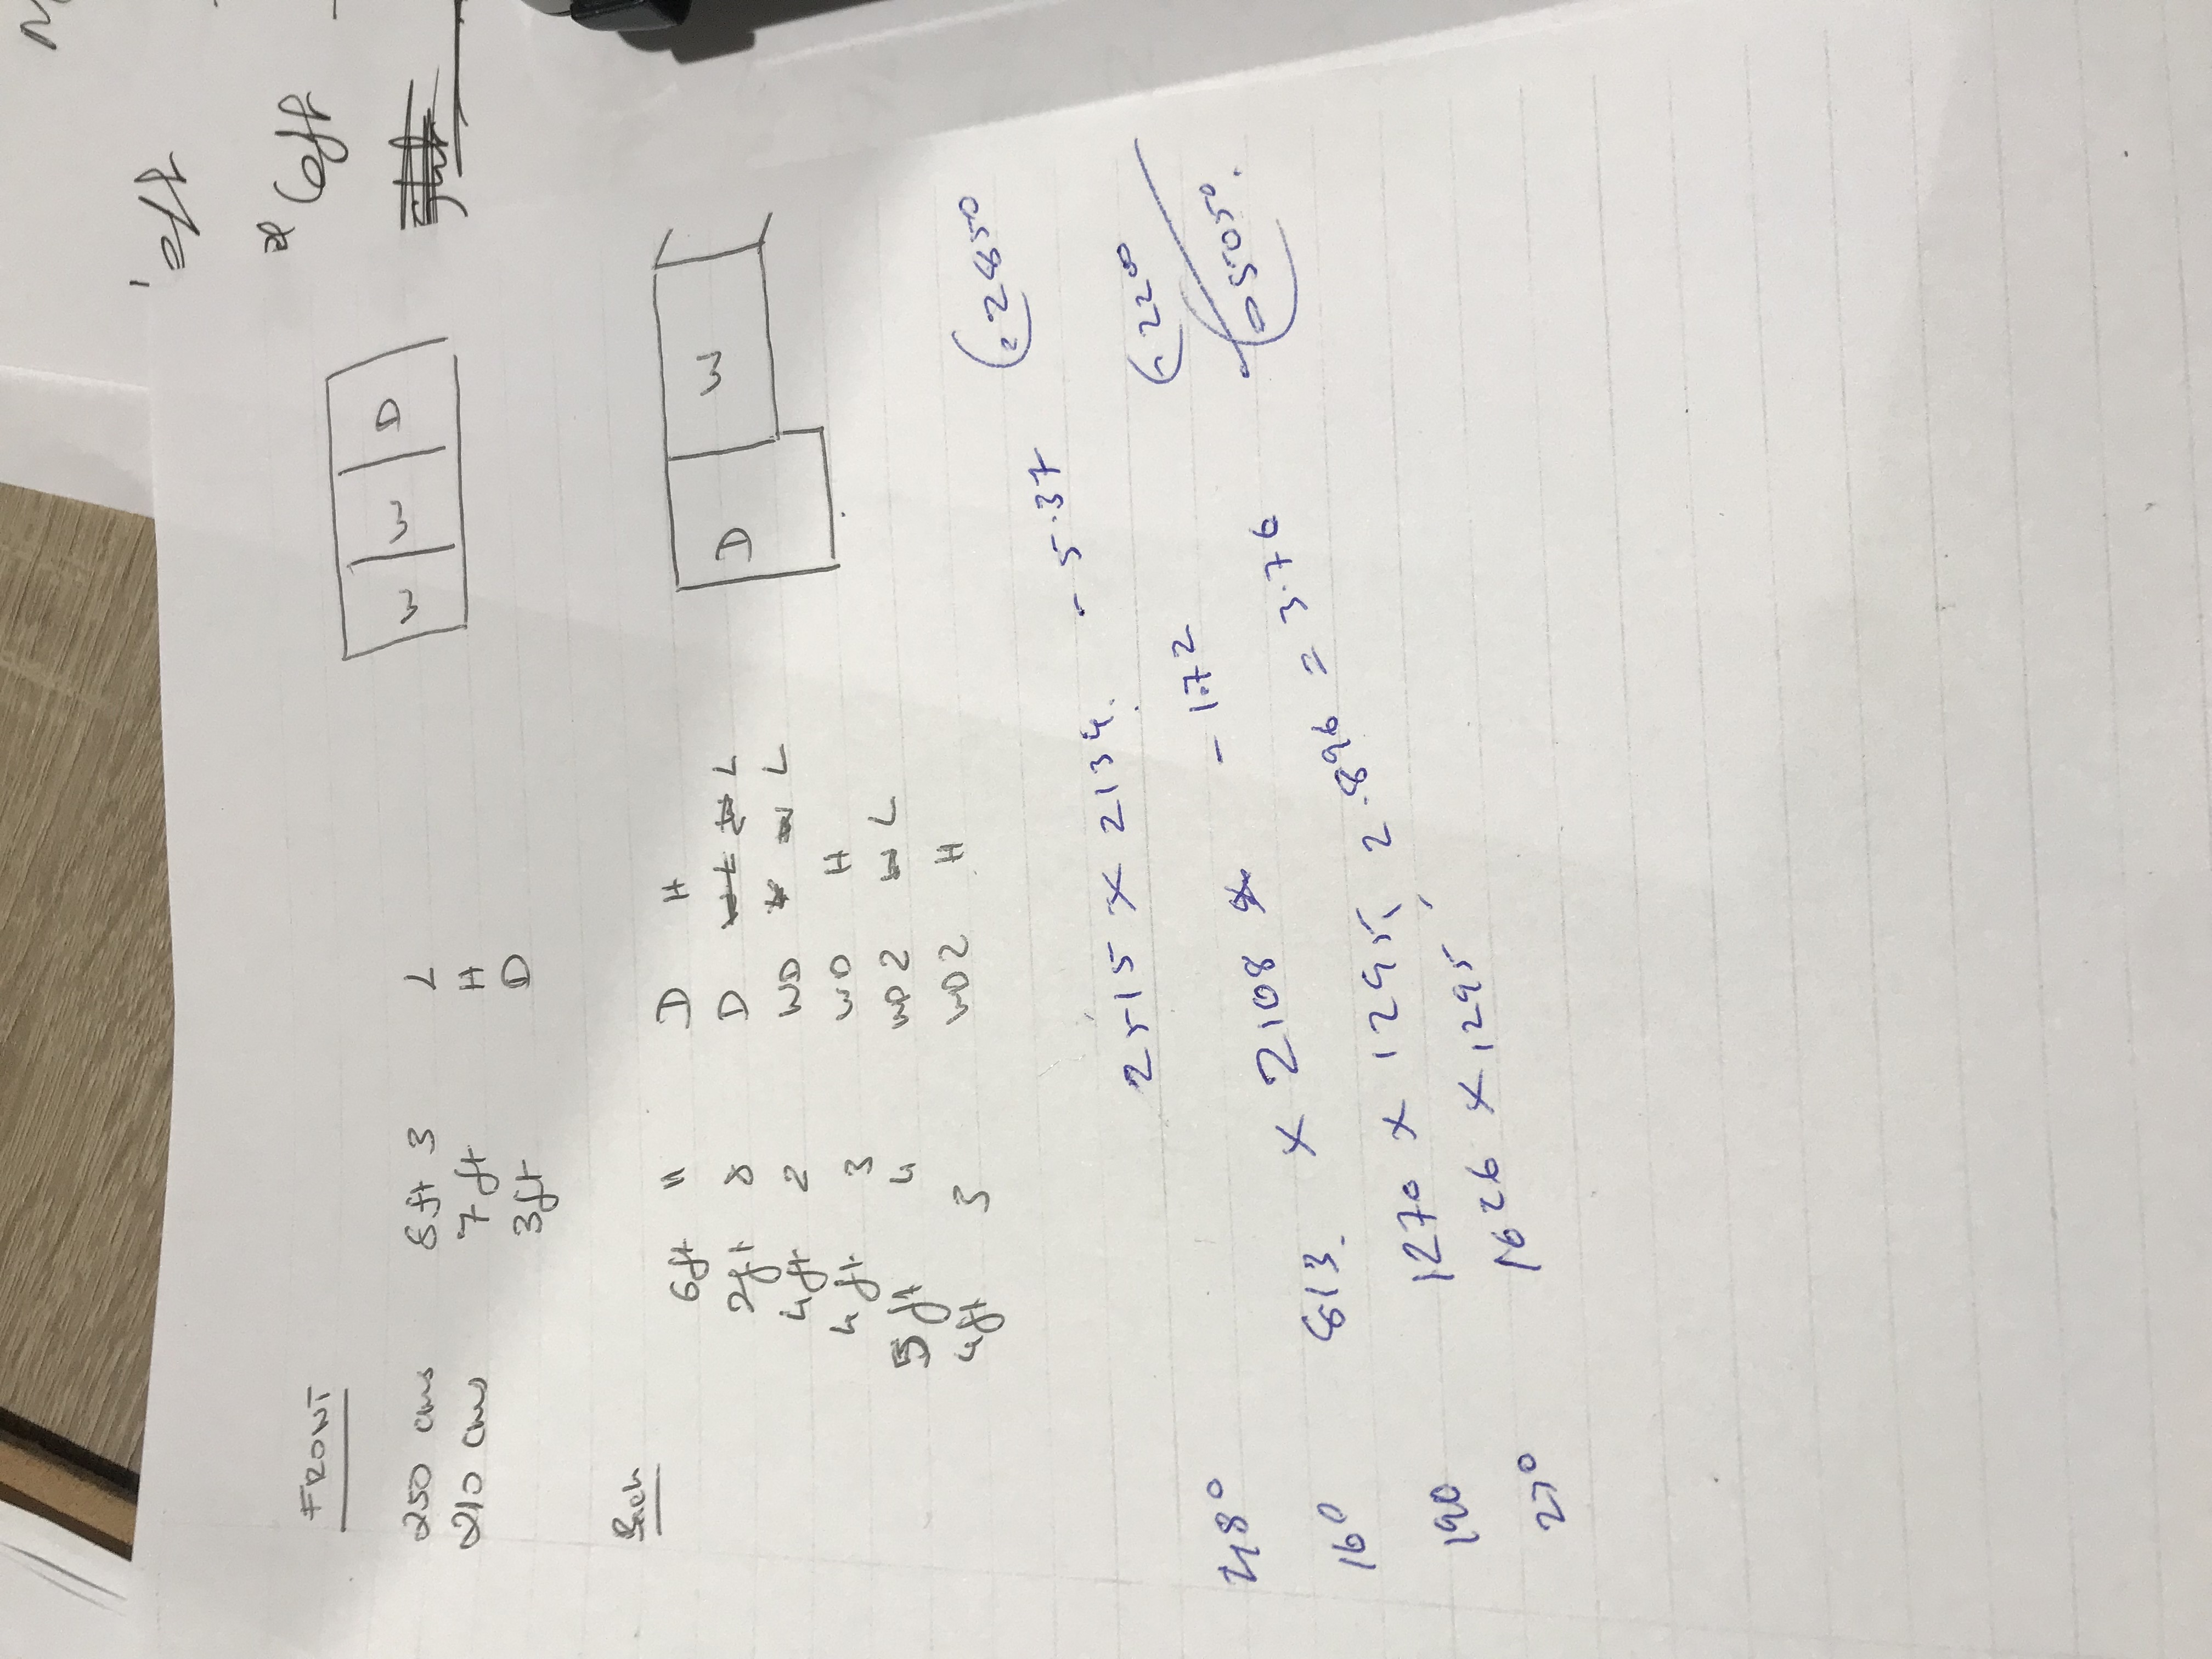 FRONT
250 cms 8ft 3 L
210 cms 7ft H
3ft D
W W D
Back
6ft 11 D H
2ft 8 D L
4ft 2 WD L
4ft 3 WD H
5ft 4 WD2 L
4ft 3 WD2 H
D W
2515 x 2134. - 5.37
480 813. x 2108 - 1.72
160
1270 x 1295, 2.896 = 3.76
190 1626 x 1295
270
:2850
:2200
* 6ft